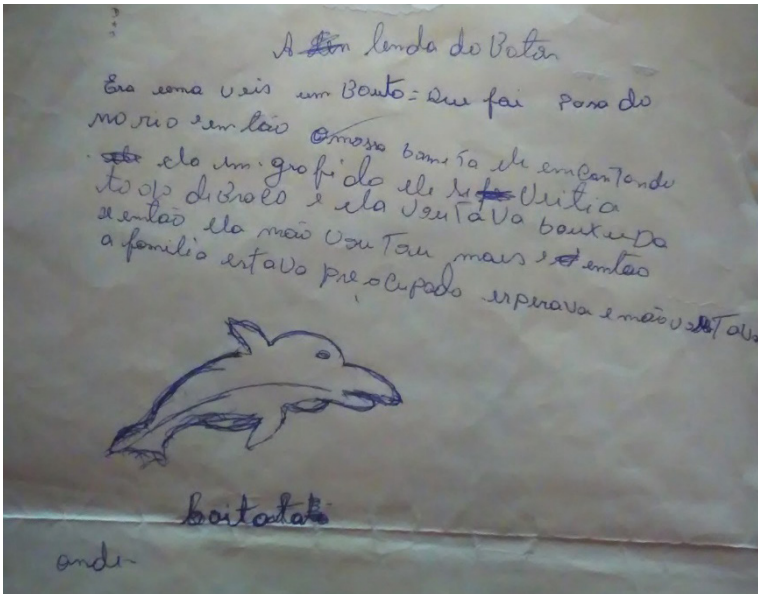 A lenda do Boton
Era uma veis um Bouto = que fai pasa do
no rio em tão a mossa boni Ta ele emcantando
ela im. gra fi da ele si vistia
todo di Braco e ela vouTava bauxuda
e então ela não vouTou mais e então
a familia estava pre o cupado esperava e não vouTava
boitata
ander